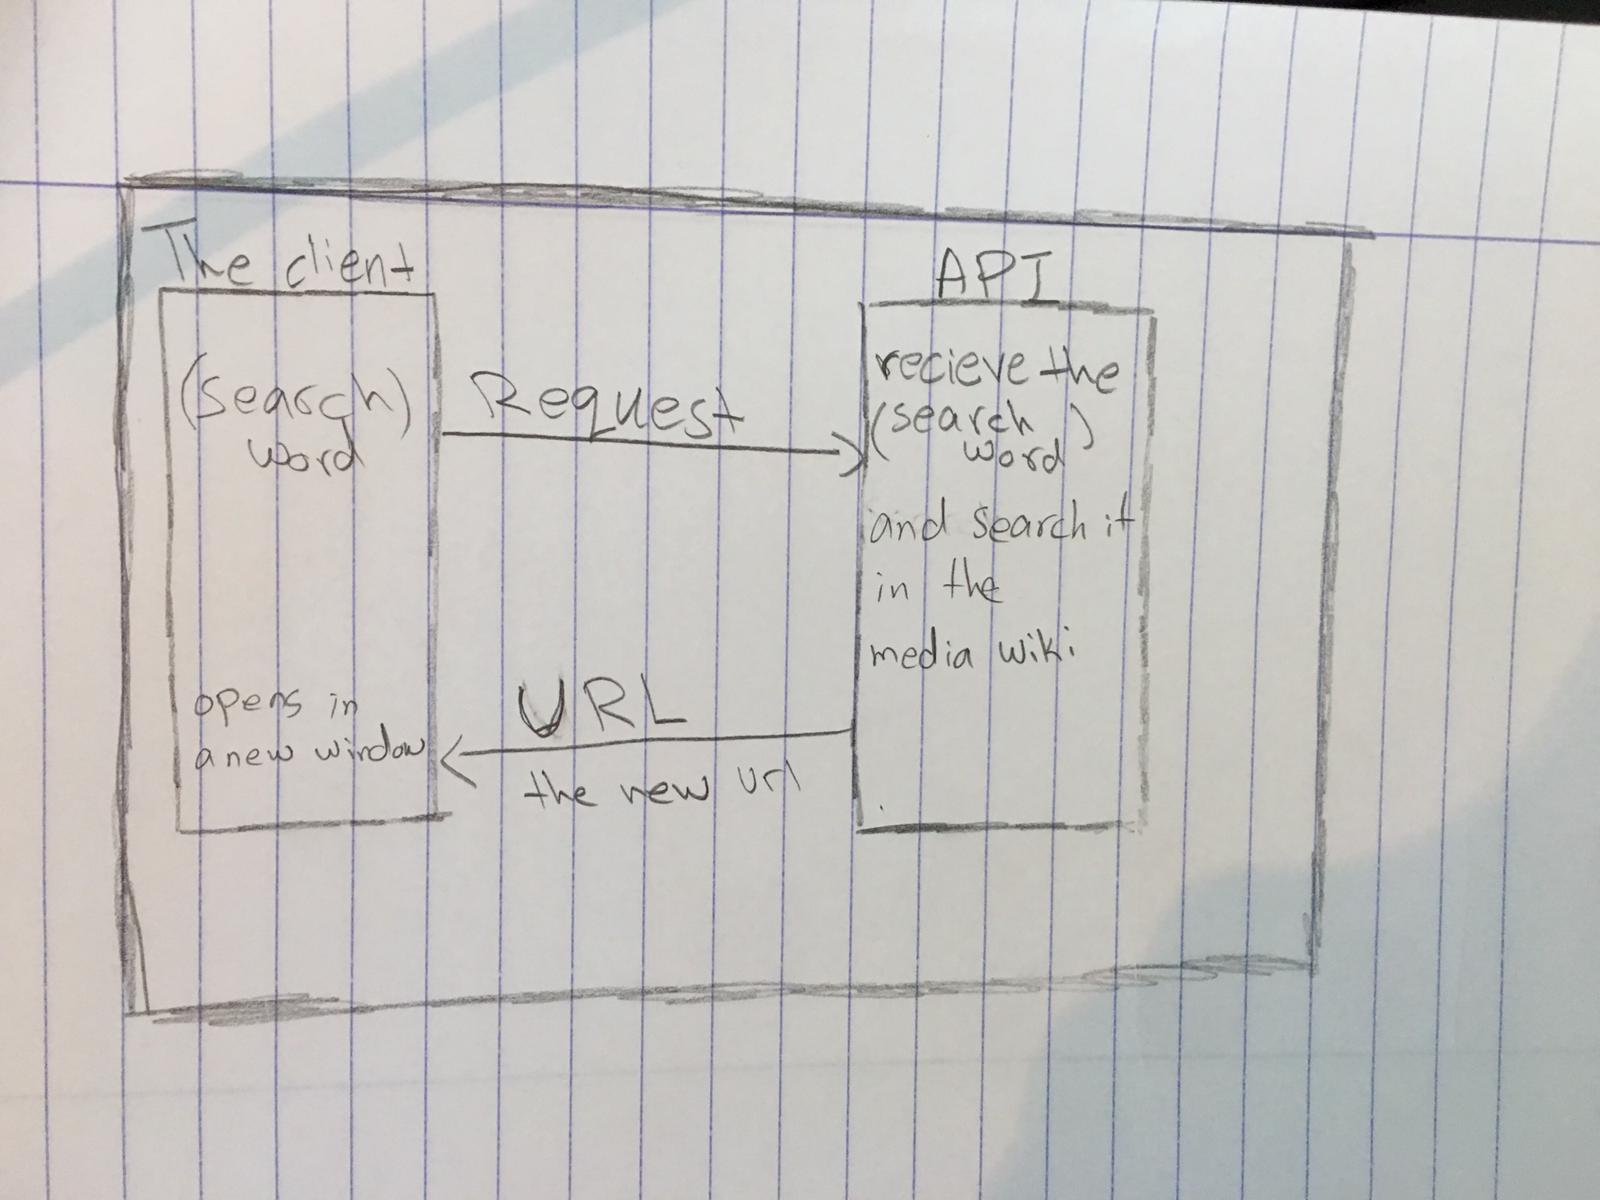 The client
(search)
word
opens in
a new window
Request
URL
the new url
API
recieve the
(search
word)
and search it
in the
media wiki